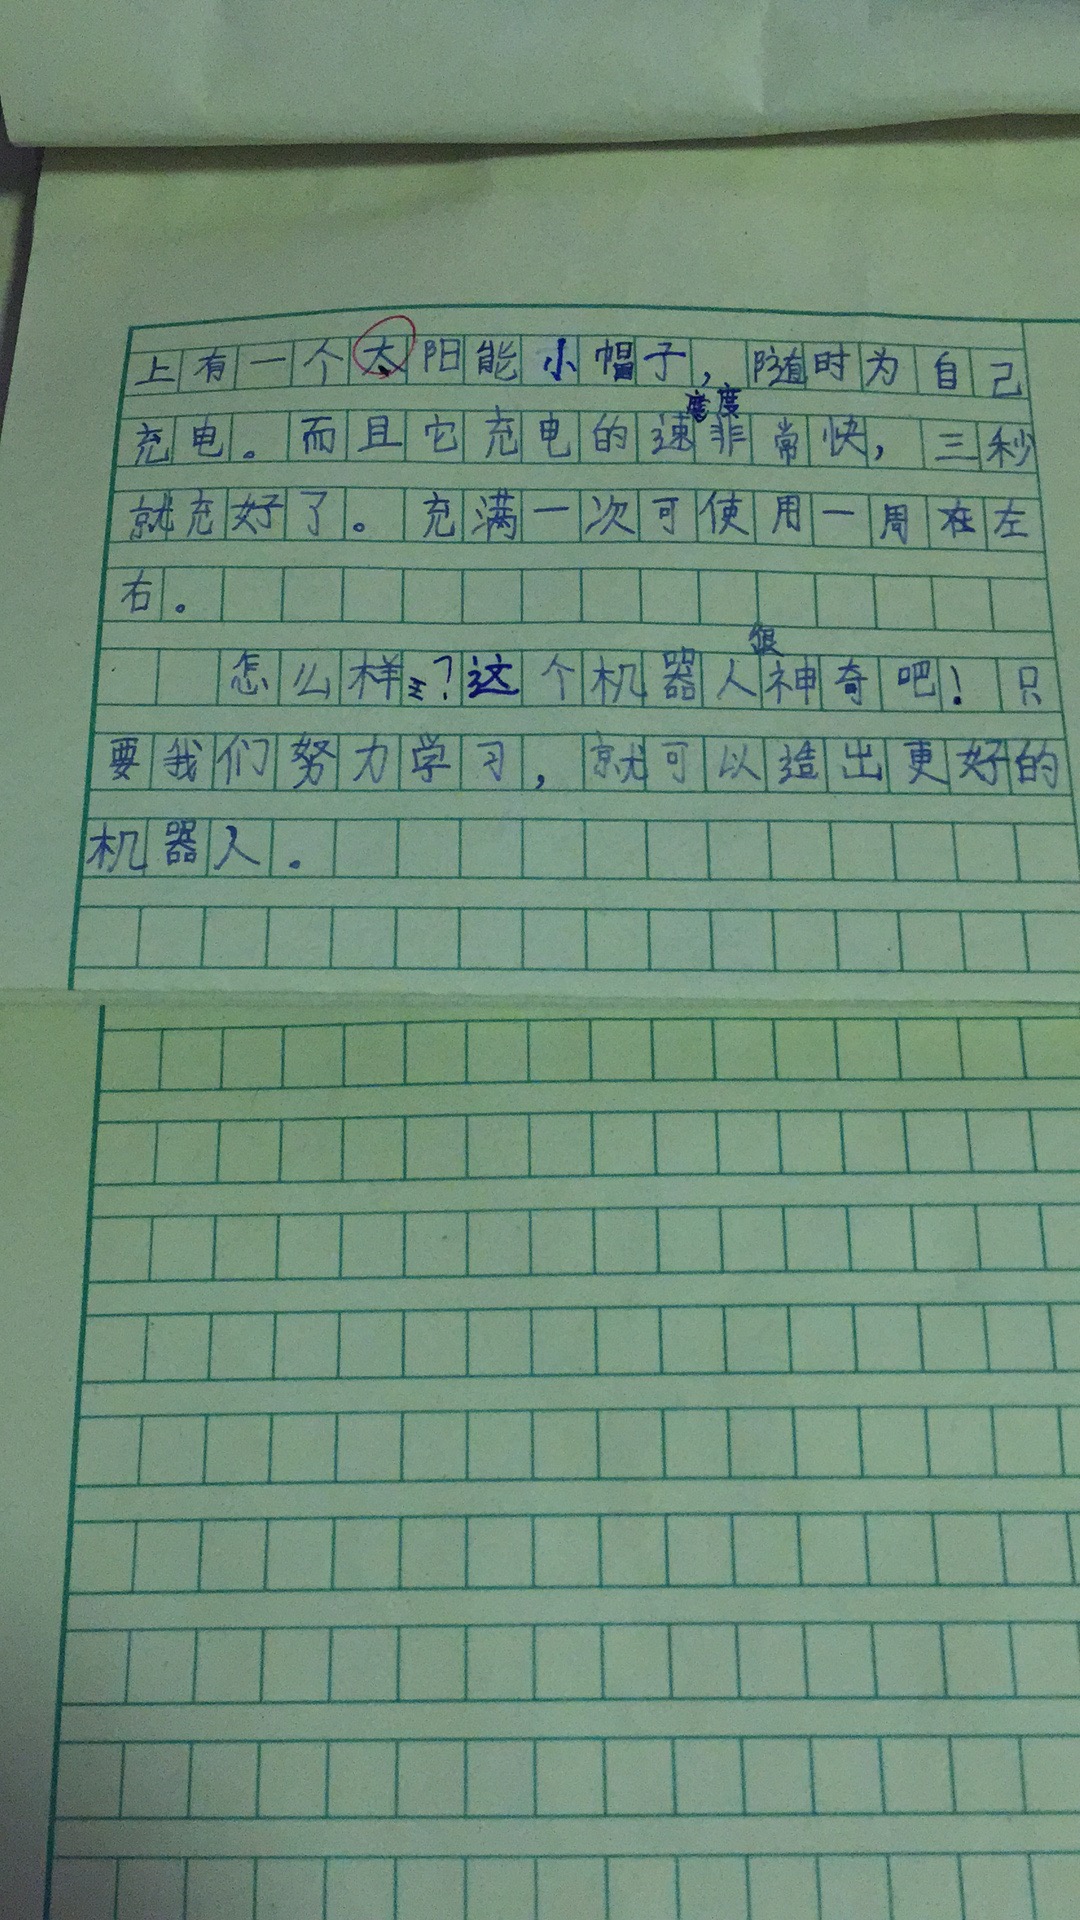 上有一个太阳能小帽子，随时为自己
充电。而且它充电的速度非常快，三秒
就充好了。充满一次可使用一周在左
右。
怎么样？这个机器人很神奇吧！只
要我们努力学习，就可以造出更好的
机器人。